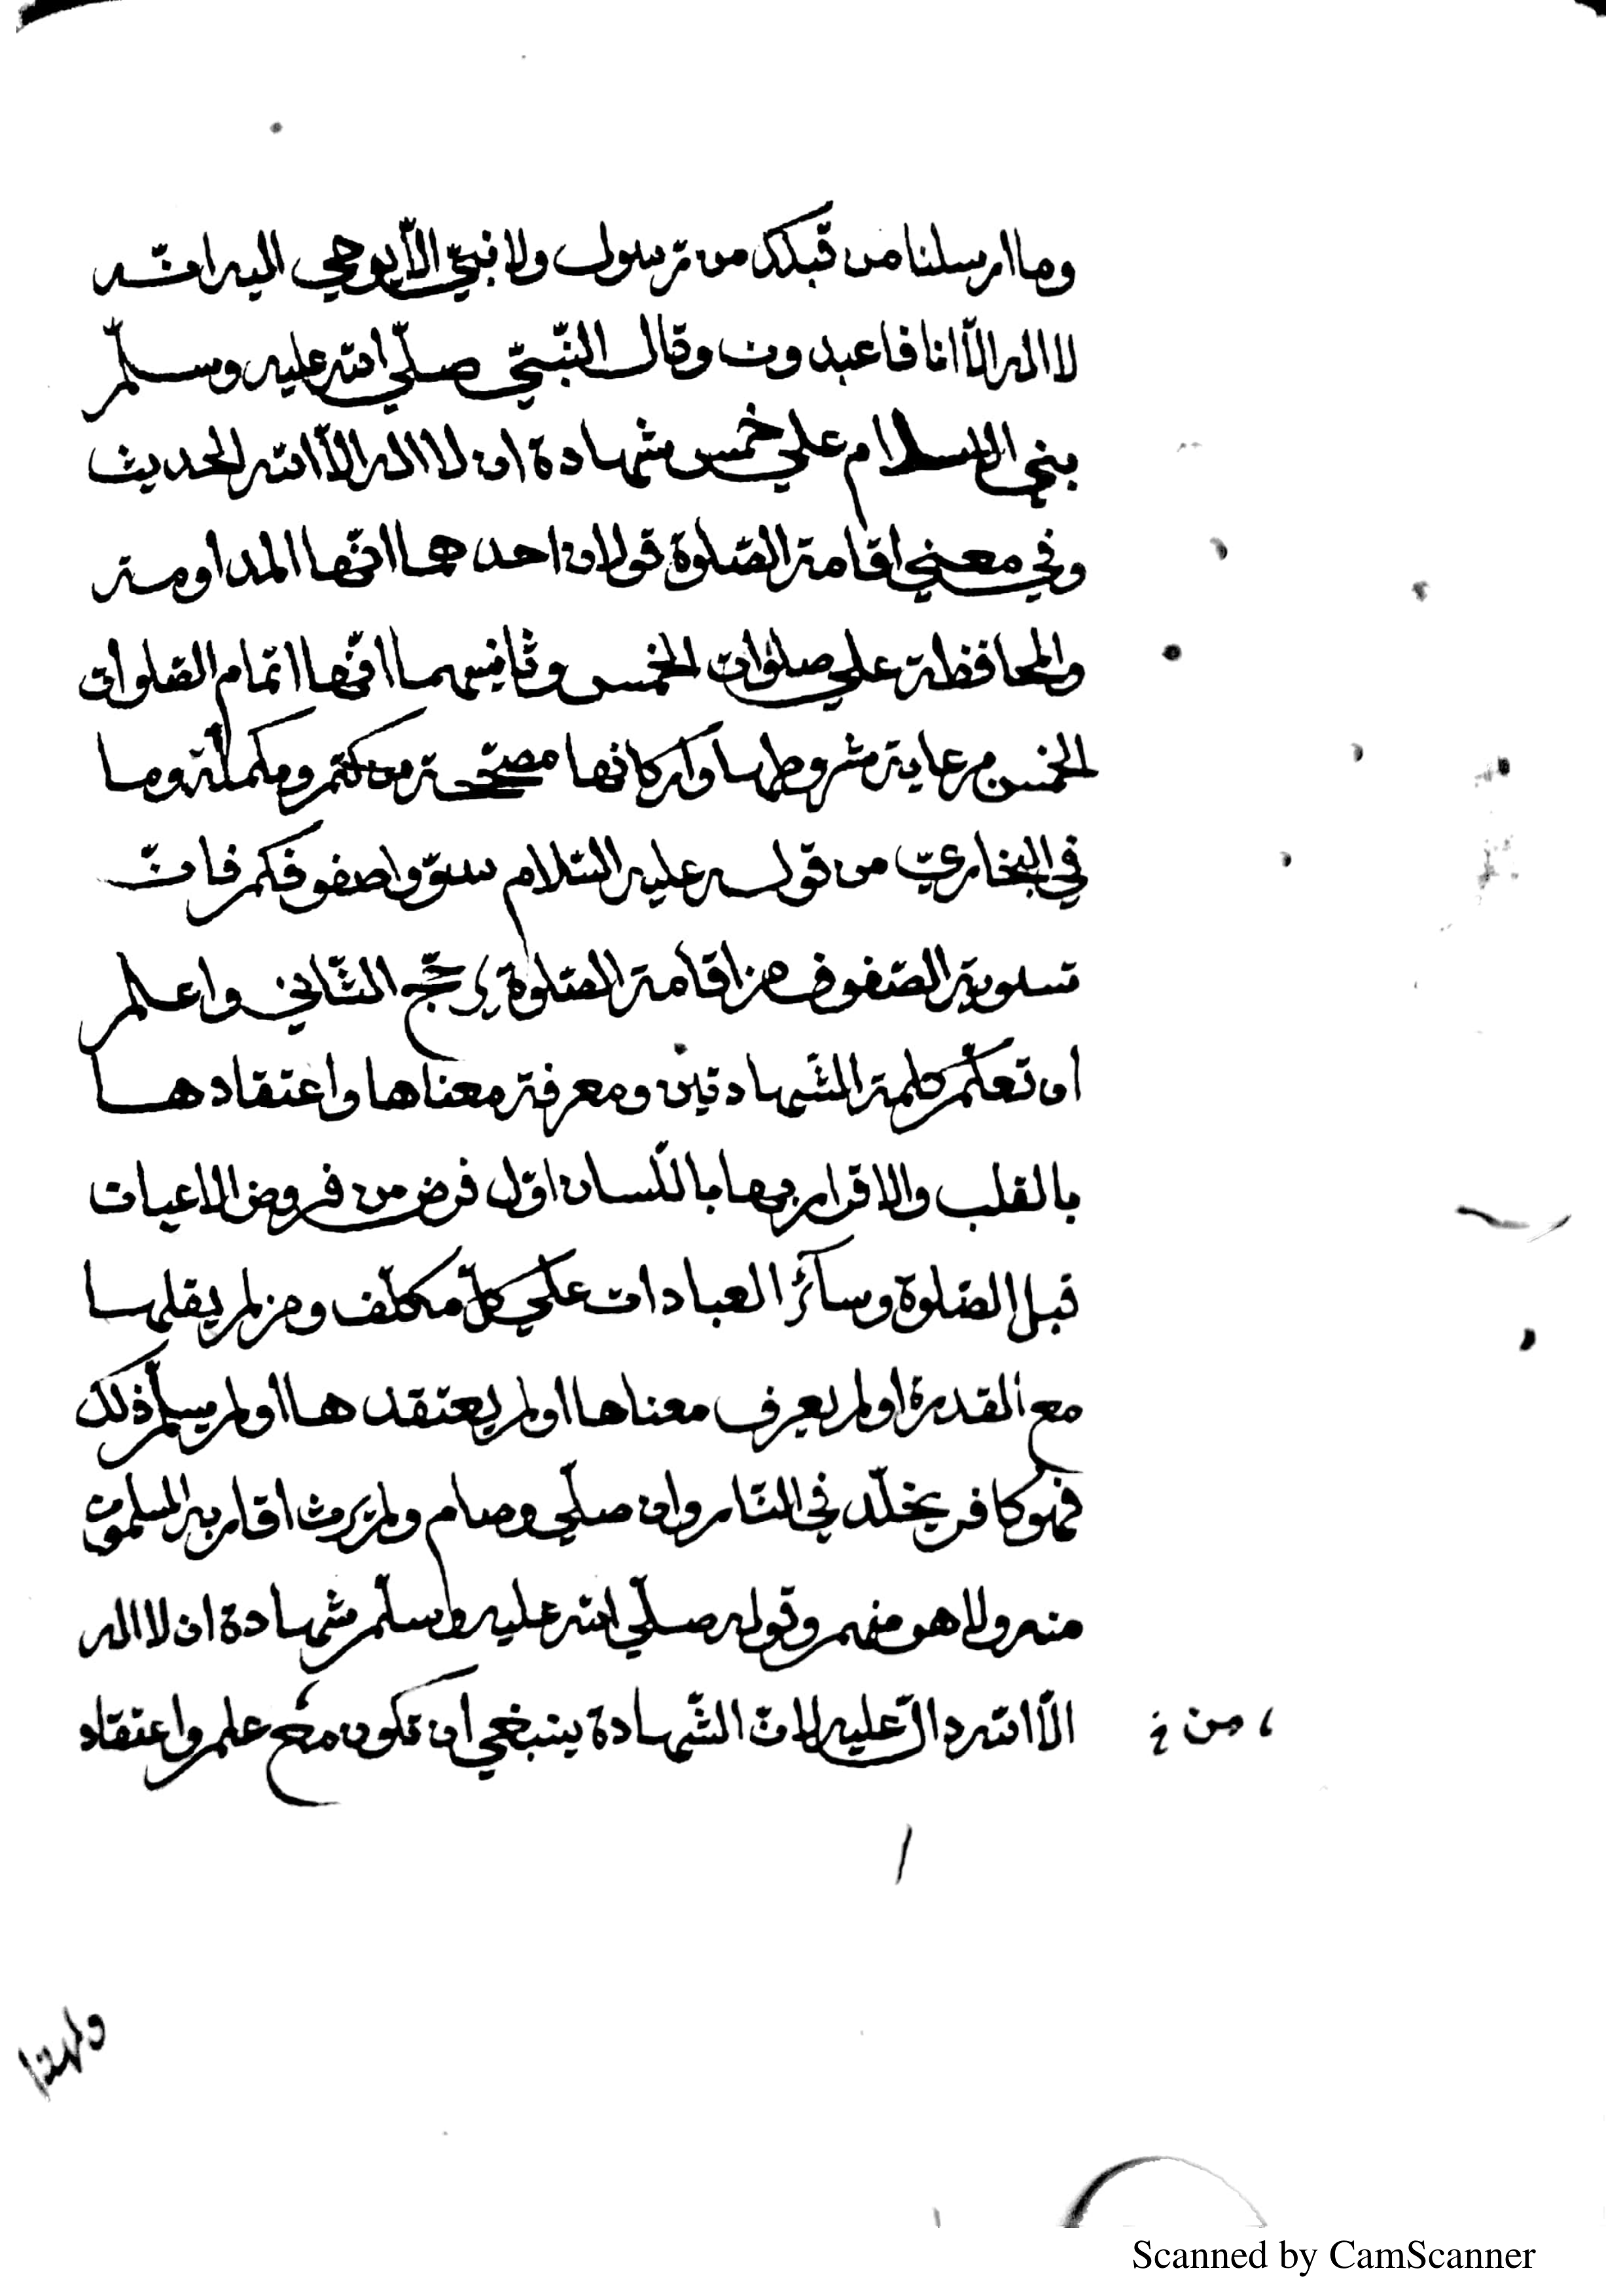 وما ارسلنا من قبلك من رسول ولا نبيّ الّا يوحي اليه انّه
لا اله الّا انا فاعبدون وقال النّبيّ صلّي الله عليه وسلّم
بني الاسلام علي خمس شهادة ان لا اله الّا الله الحديث
وفي معني اقامة الصّلوة قولان احدهما انّها المداومة
والمحافظة علي صلوات الخمس وثانيهما انّها اتمام الصّلوات
الخمس رعاية شروطها واركانها مصحّحة ومكمّلة وما
في البخاريّ من قوله عليه السّلام سوّوا صفوفكم فانّ
تسوية الصّفوف من اقامة الصّلوة يرجّح الثّاني واعلم
ان تعلّم كلمة الشّهادتين ومعرفة معناها واعتقادها
بالقلب والاقرار بها باللّسان اوّل فرض من فروض الاعيان
قبل الصّلوة وسآئر العبادات علي كلّ مكلّف ومن لم يقلها
مع القدرة او لم يعرف معناها او لم يعتقدها او لم يسلّم ذلك
فهو كافر يخلّد في النّار وان صلّي وصام ولم يرث اقاربه المسلمون
منه ولا هو منهم وقوله صلّي الله عليه وسلّم شهادة ان لا اله
الّا الله دالّ عليه لانّ الشّهادة ينبغي ان تكون مع علم واعتقاد
من
Scanned by CamScanner